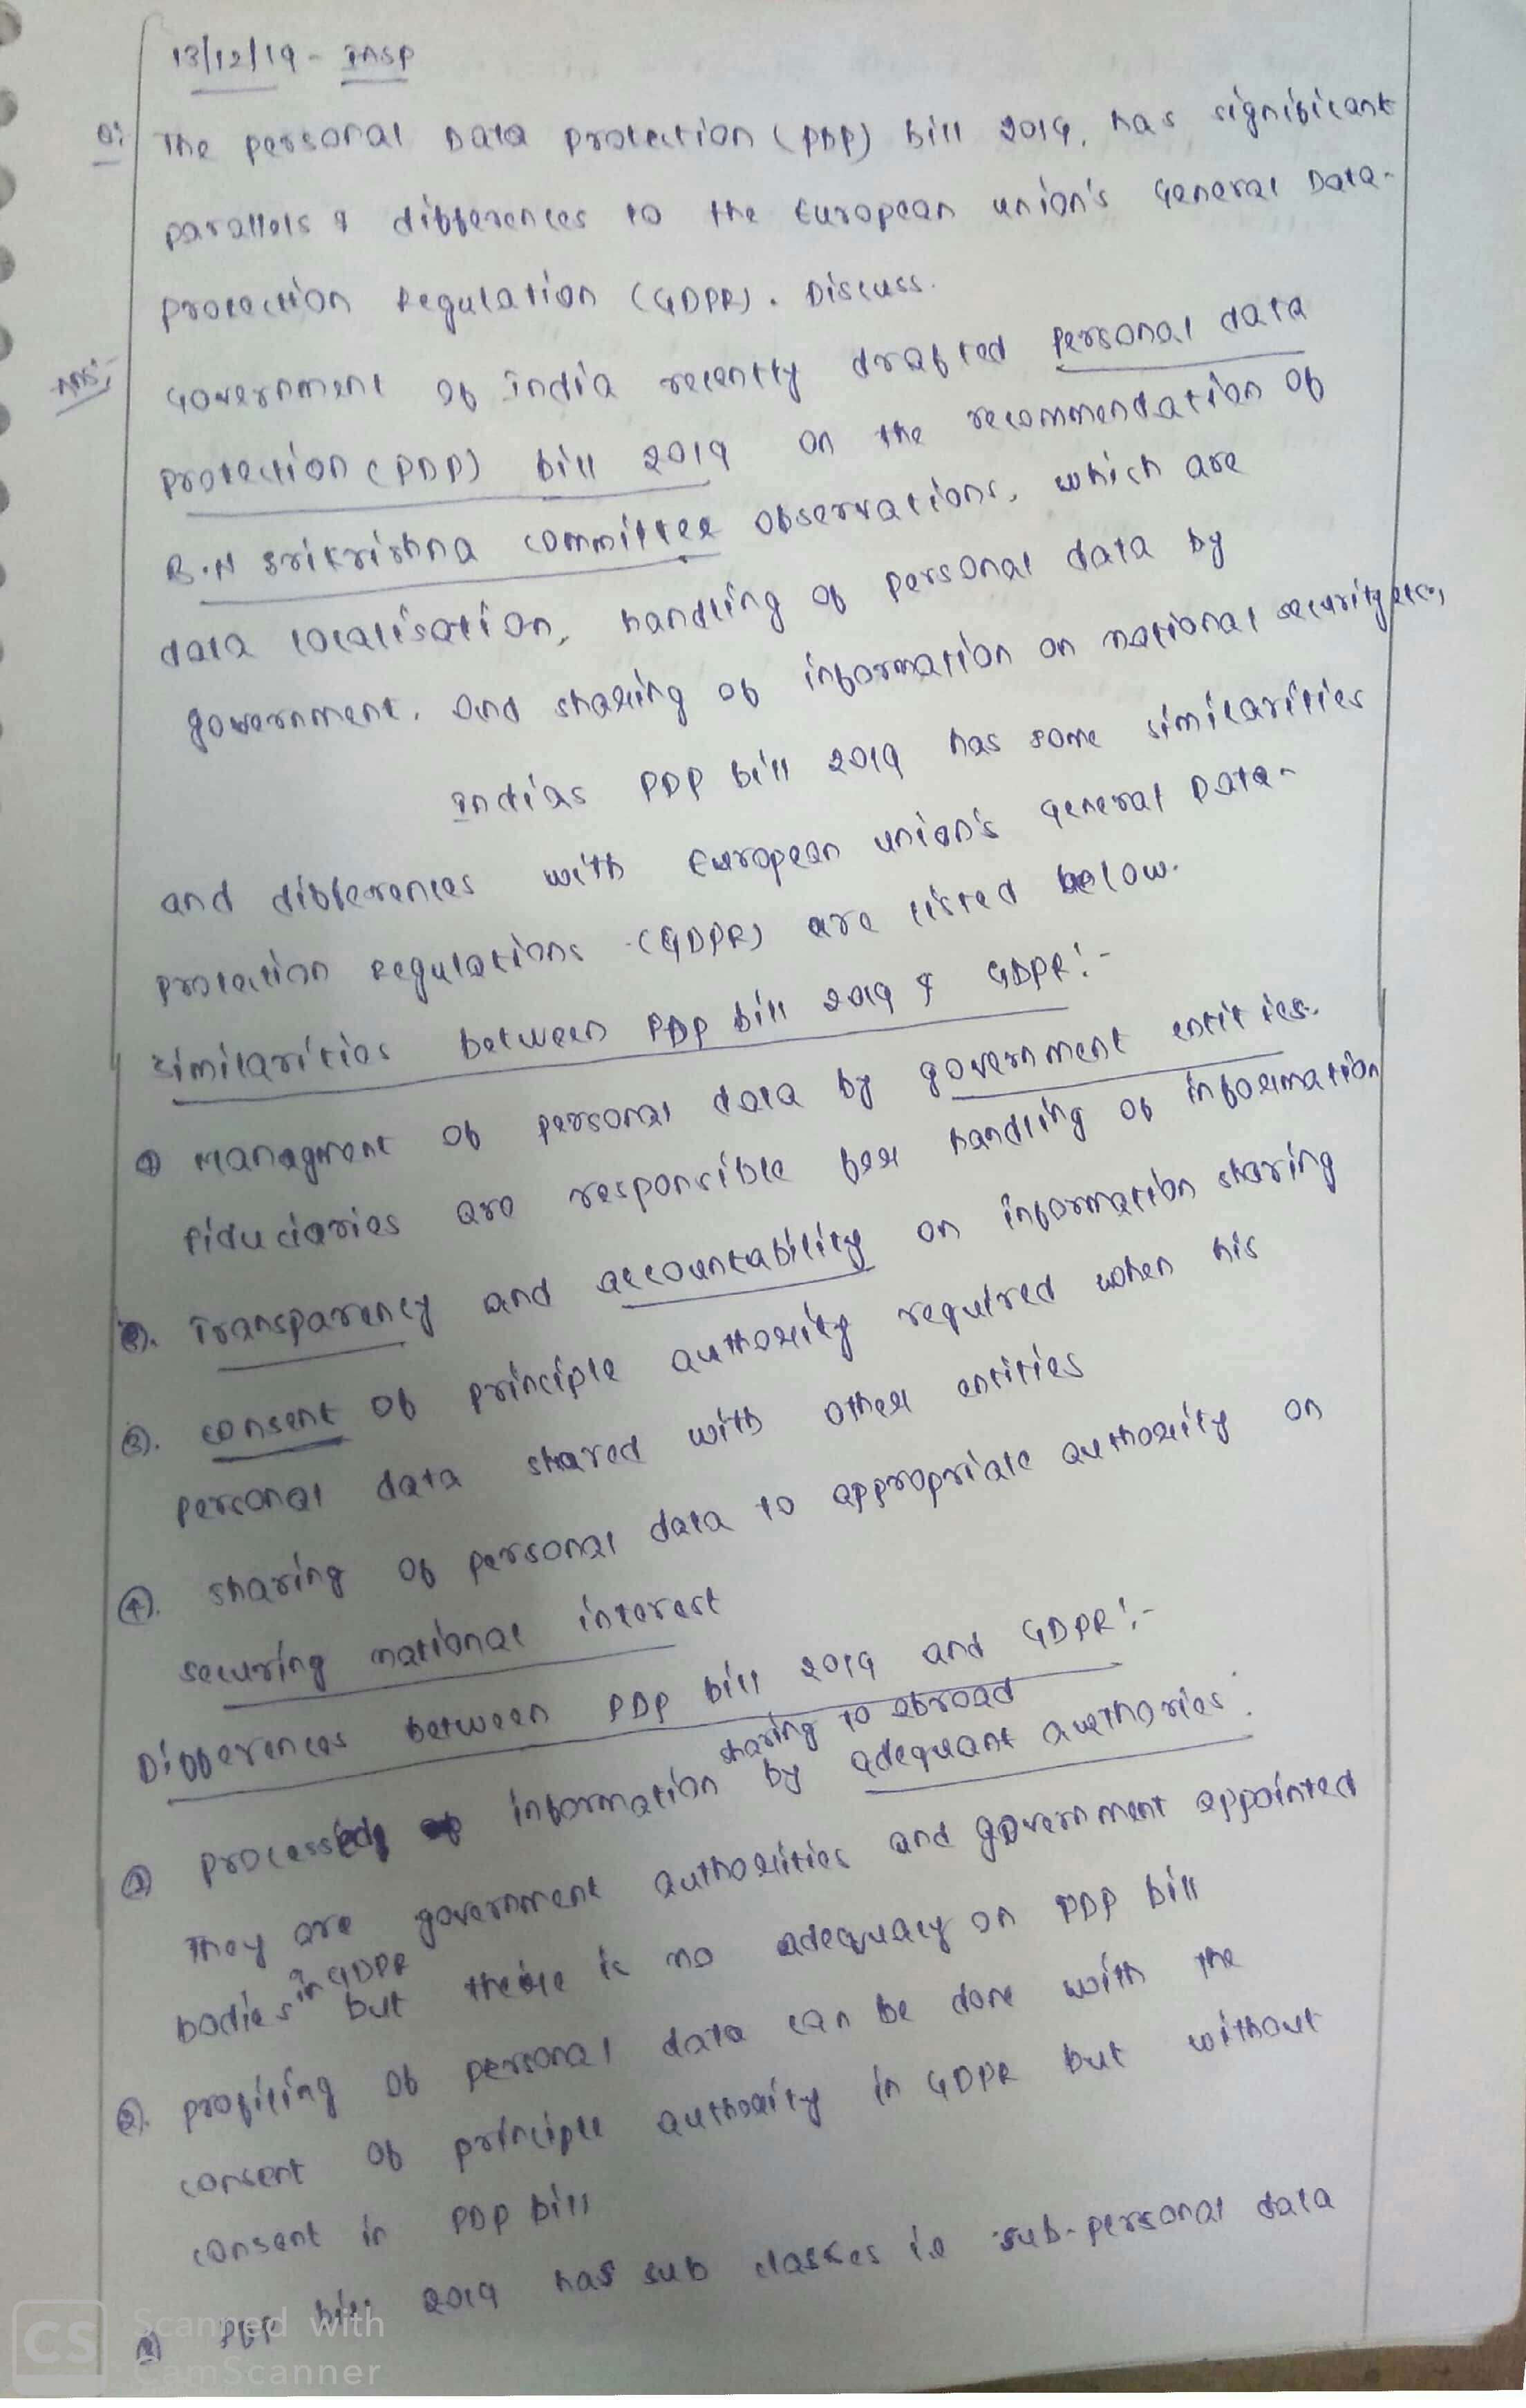 13/12/19 - INSP
Q: The personal Data protection (PDP) bill 2019, has significant
parallels & differences to the European union's General Data-
Protection Regulation (GDPR). Discuss.
Ans:- Government of india recently drafted personal data
protection (PDP) bill 2019 on the recommendation of
B.N Srikrishna committee observations, which are
data localisation, handling of personal data by
government, and sharing of information on national security etc.,
Indias PDP bill 2019 has some similarities
and differences with European union's General Data-
Protection Regulations (GDPR) are listed below.
Similarities between PDP bill 2019 & GDPR:-
① Managment of personal data by government entities.
fiduciaries are responsible for handling of information
②. Transparency and accountability on information sharing
③. consent of principle authority required when his
personal data shared with other entities
④. sharing of personal data to appropriate authority on
securing national interest
Differences between PDP bill 2019 and GDPR:-
sharing to abroad
① processed information by adequant authories.
They are government authorities and government appointed
bodies in GDPR but there is no adequacy on PDP bill
②. profiling of personal data can be done with the
consent of principle authority in GDPR but without
consent in PDP bill
PDP bill 2019 has sub classes ie sub-personal data
CS Scanned with
CamScanner